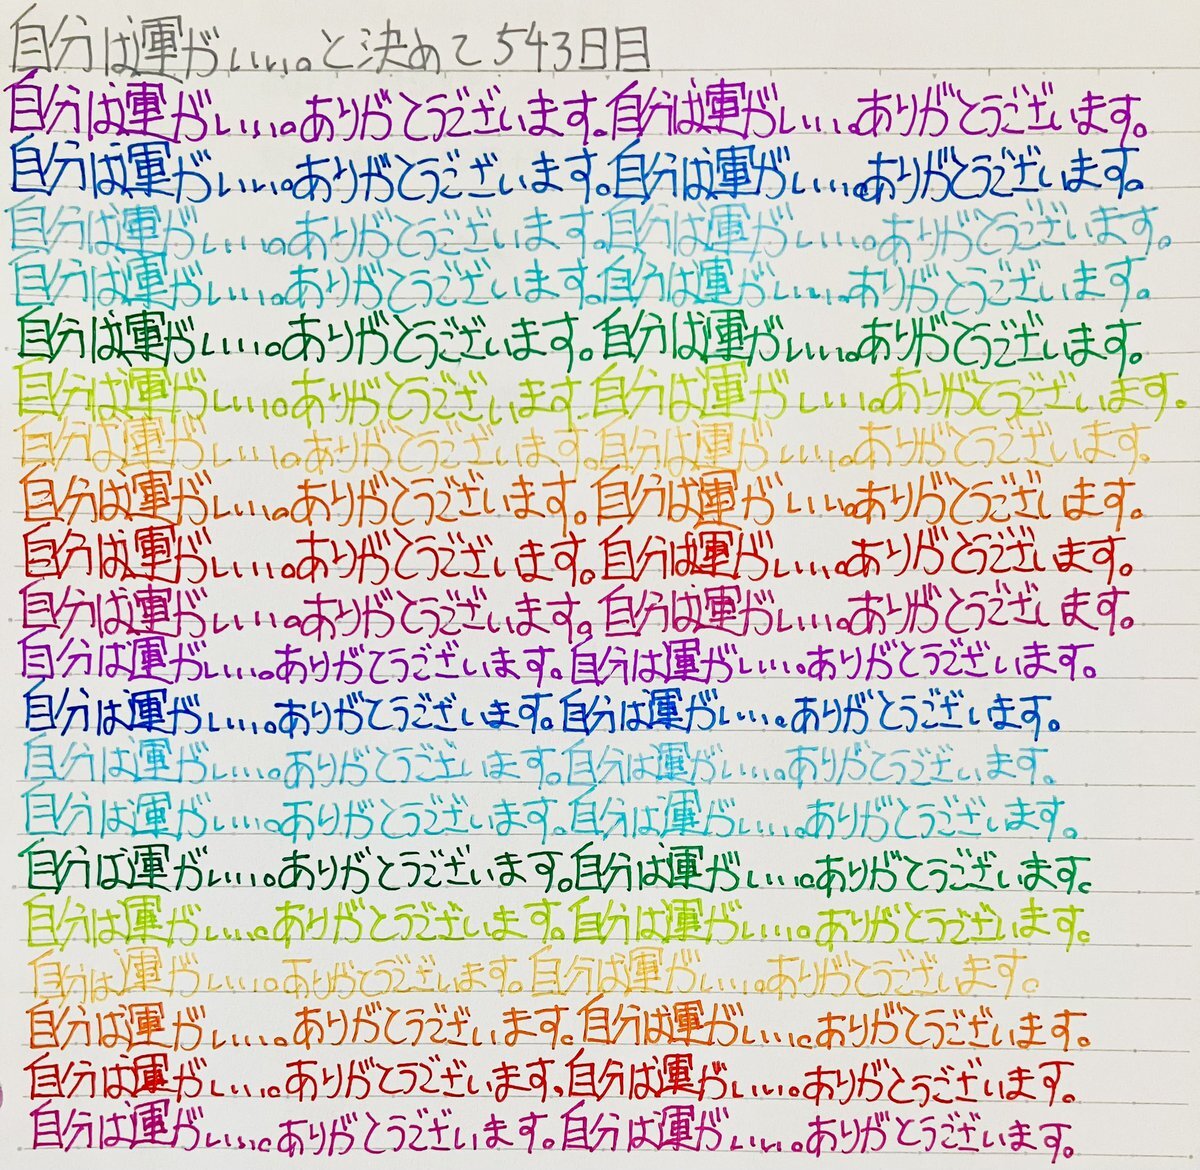 自分は運がいい。と決めて543日目
自分は運がいい。ありがとうございます。自分は運がいい。ありがとうございます。
自分は運がいい。ありがとうございます。自分は運がいい。ありがとうございます。
自分は運がいい。ありがとうございます。自分は運がいい。ありがとうございます。
自分は運がいい。ありがとうございます。自分は運がいい。ありがとうございます。
自分は運がいい。ありがとうございます。自分は運がいい。ありがとうございます。
自分は運がいい。ありがとうございます。自分は運がいい。ありがとうございます。
自分は運がいい。ありがとうございます。自分は運がいい。ありがとうございます。
自分は運がいい。ありがとうございます。自分は運がいい。ありがとうございます。
自分は運がいい。ありがとうございます。自分は運がいい。ありがとうございます。
自分は運がいい。ありがとうございます。自分は運がいい。ありがとうございます。
自分は運がいい。ありがとうございます。自分は運がいい。ありがとうございます。
自分は運がいい。ありがとうございます。自分は運がいい。ありがとうございます。
自分は運がいい。ありがとうございます。自分は運がいい。ありがとうございます。
自分は運がいい。ありがとうございます。自分は運がいい。ありがとうございます。
自分は運がいい。ありがとうございます。自分は運がいい。ありがとうございます。
自分は運がいい。ありがとうございます。自分は運がいい。ありがとうございます。
自分は運がいい。ありがとうございます。自分は運がいい。ありがとうございます。
自分は運がいい。ありがとうございます。自分は運がいい。ありがとうございます。
自分は運がいい。ありがとうございます。自分は運がいい。ありがとうございます。
自分は運がいい。ありがとうございます。自分は運がいい。ありがとうございます。